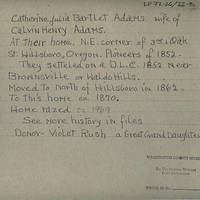 LP 77-76/22-8
Catherine Julia Bartlet Adams. wife of
Calvin Henry Adams.
At their home, N.E. corner of 3rd & Oak
St Hillsboro, Oregon. Pioneers of 1852.
They settled on a D.L.C. 1852 near
Brownsville or Waldo Hills.
Moved to North of Hillsboro in 1862
To this home on 1870.
Home razed on 1959
See more history in files
Donor Violet Rush, a Great Grand Daughter
WASHINGTON COUNTY MUSEUM